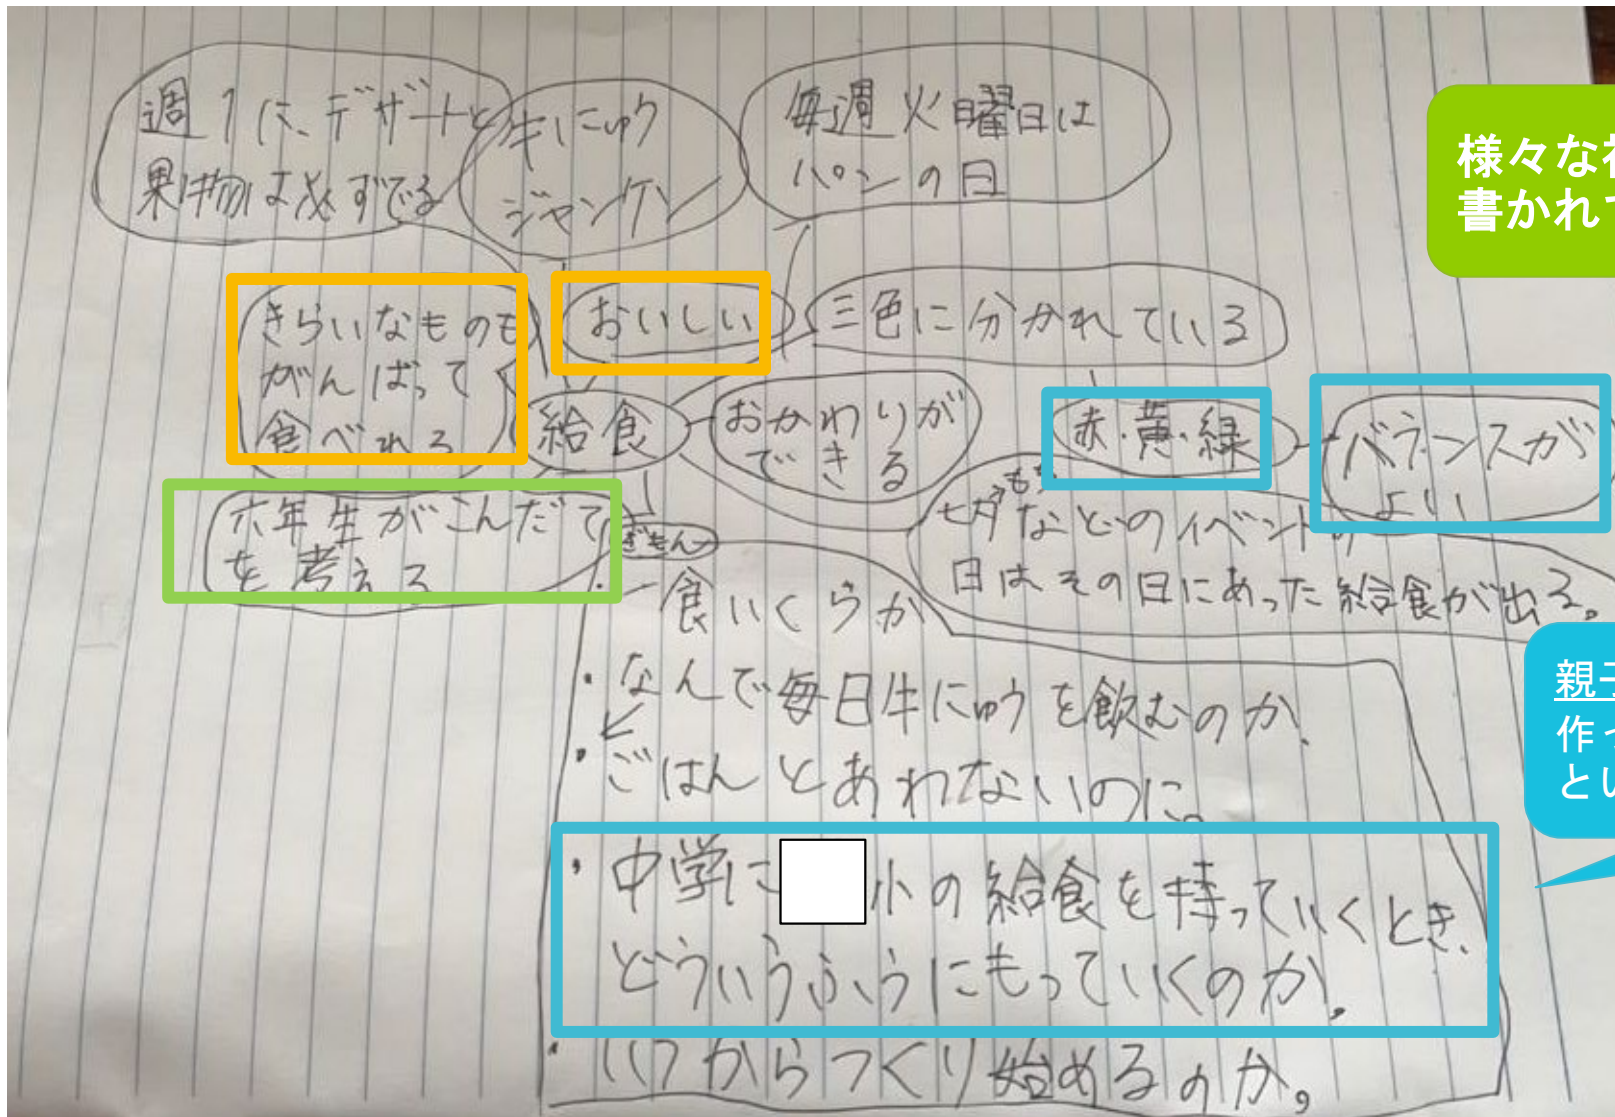 週1に、デザートと
果物は必ずでる
牛にゅう
ジャンケン
毎週火曜日は
パンの日
様々な
書かれ
きらいなものも
がんばって
食べれる
おいしい
三色に分かれている
給食
おかわりが
できる
赤・黄・緑
バランスが
よい
六年生がこんだて
を考える
ぎもん
七夕などのイベント
日はその日にあった給食が出る。
・一食いくらか
・なんで毎日牛にゅうを飲むのか、
・ごはんとあわないのに。
・中学に 小の給食を持っていくとき、
どういうふうにもっていくのか。
・いつからつくり始めるのか。
親子
作っ
とい